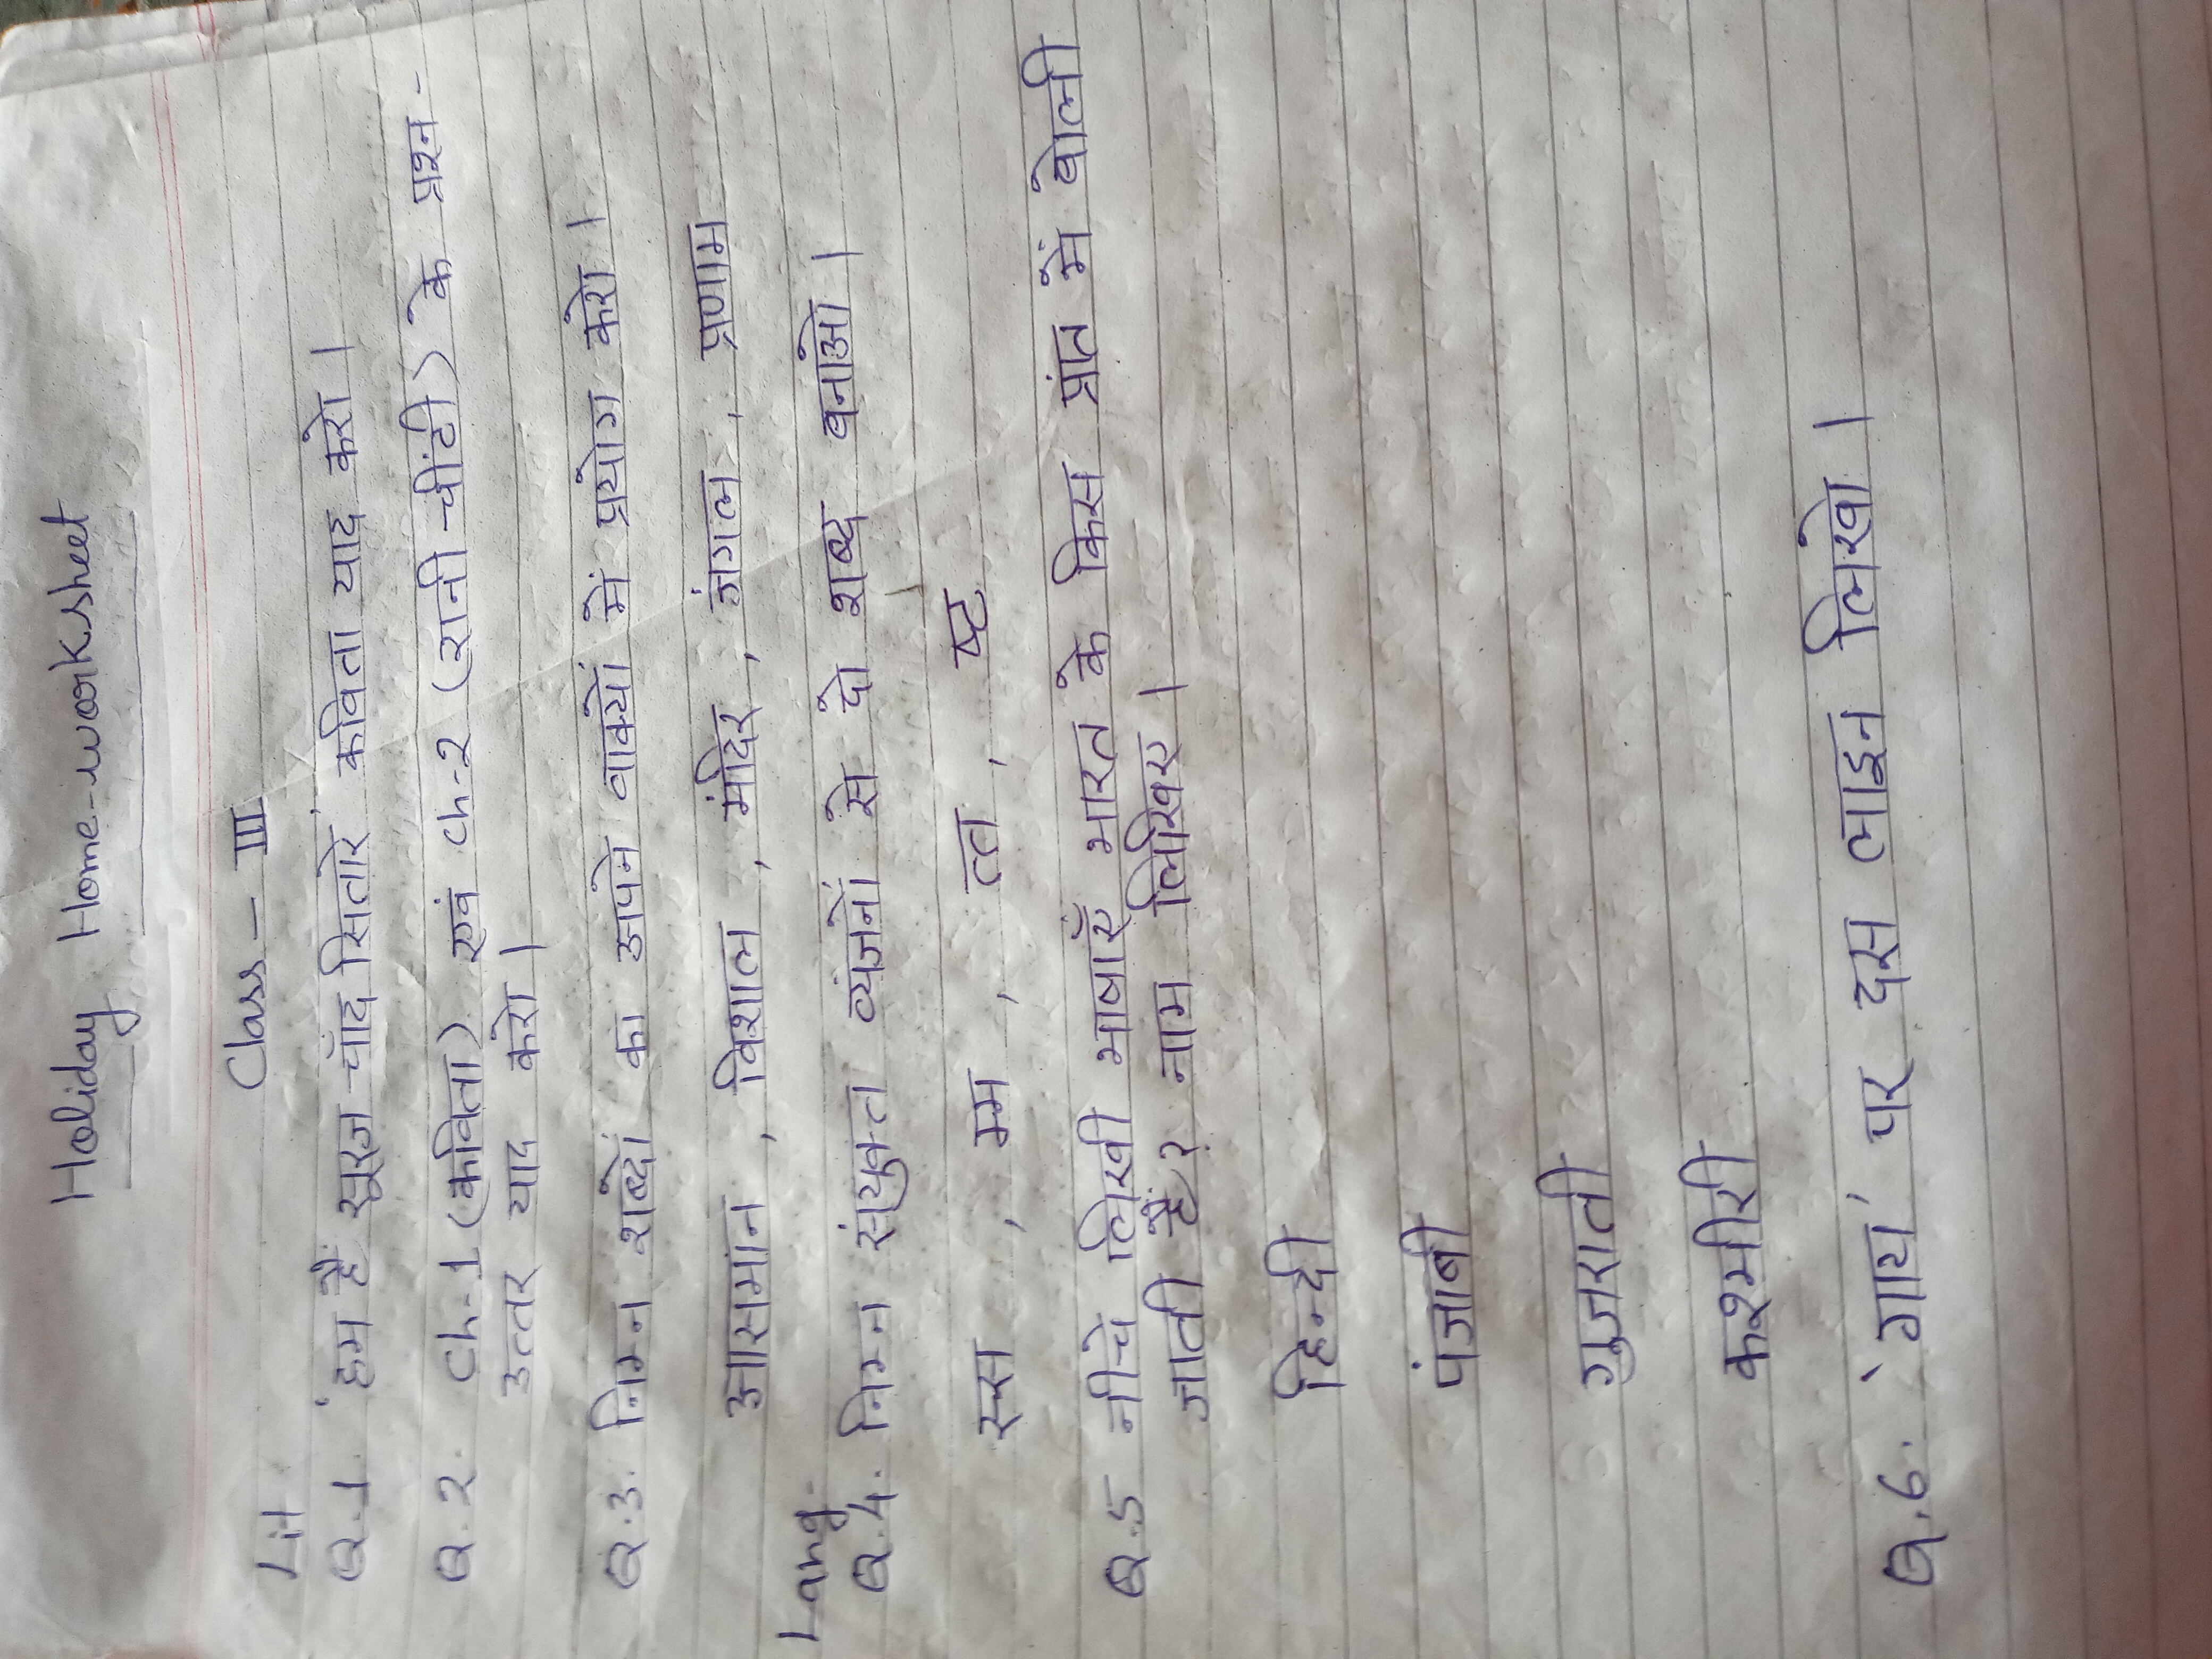 Holiday Home-worksheet
Class - III
Lit
Q.1. 'हम हैं सूरज-चाँद सितारे' कविता याद करो।
Q.2. Ch-1 (कविता) एवं Ch-2 (रानी चींटी) के प्रश्न-
उत्तर याद करो।
Q.3. निम्न शब्दों का अपने वाक्यों में प्रयोग करो।
आसमान, विशाल, मंदिर, जंगल, प्रणाम
Lang-
Q.4. निम्न संयुक्त व्यंजनों से दो शब्द बनाओ।
स्स, म्म, त्त, ष्ट
Q.5 नीचे लिखी भाषाएँ भारत के किस प्रांत में बोली
जाती हैं? नाम लिखिए।
हिन्दी
पंजाबी
गुजराती
कश्मीरी
Q.6. 'गाय' पर दस लाइन लिखो।